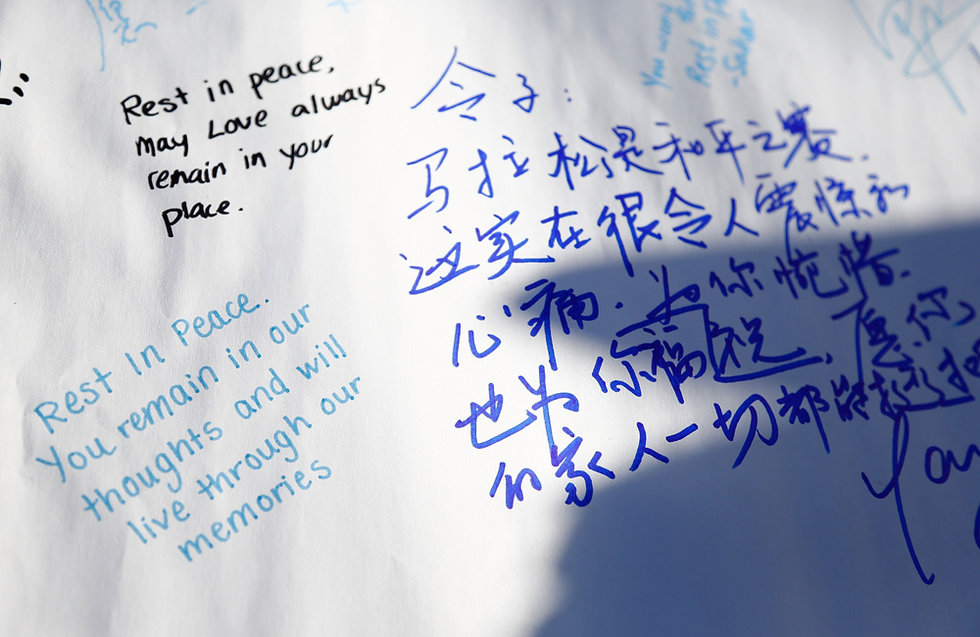 Rest in peace,
may Love always
remain in your
place.
Rest In Peace.
You remain in our
thoughts and will
live through our
memories
令子:
马拉松是和平之赛.
这实在很令人震惊和
心痛. 为你惋惜.
也为你祝. 愿你
的家人一切都能
You
Rest in